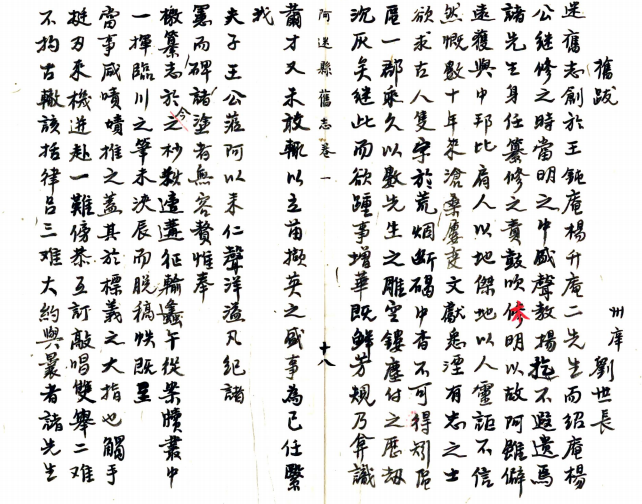 舊跋
州庠劉世長
迷舊志創於王鈍庵楊升庵二先生而紹庵楊
公継修之時當明之中盛聲教揚拖不遐遺焉
諸先生身任纂修之責鼓吹修明以故阿雖僻
遠獲與中邦比肩人以地傑地以人靈詎不信
然慨數十年來滄桑屢更文獻悉湮有志之士
欲求古人隻字於荒烟斷碣中杳不可得矧區
區一郡乘久以數先生之雕空鏤塵付之歷劫
沉灰矣継此而欲踵事增華既鮮芳規乃弇識
阿迷縣舊志卷一 十八
才又未敢輒以立苗擷英之盛事為己任繄
我
夫子王公蒞阿以来仁聲洋溢凡紀諸
憲而碑諸塗者無容贅惟奉
檄纂志於今之杪邊遘征輸蠭午從案牘叢中
一揮臨川之筆未浹辰而脫稿帙既呈
當事咸嘖嘖推之盖其於標義之大指也觸手
挺刃來機迸赴一難傍恭互訂敲唱雙舉二难
不拘古轍該括律呂三难大約與曩者諸先生